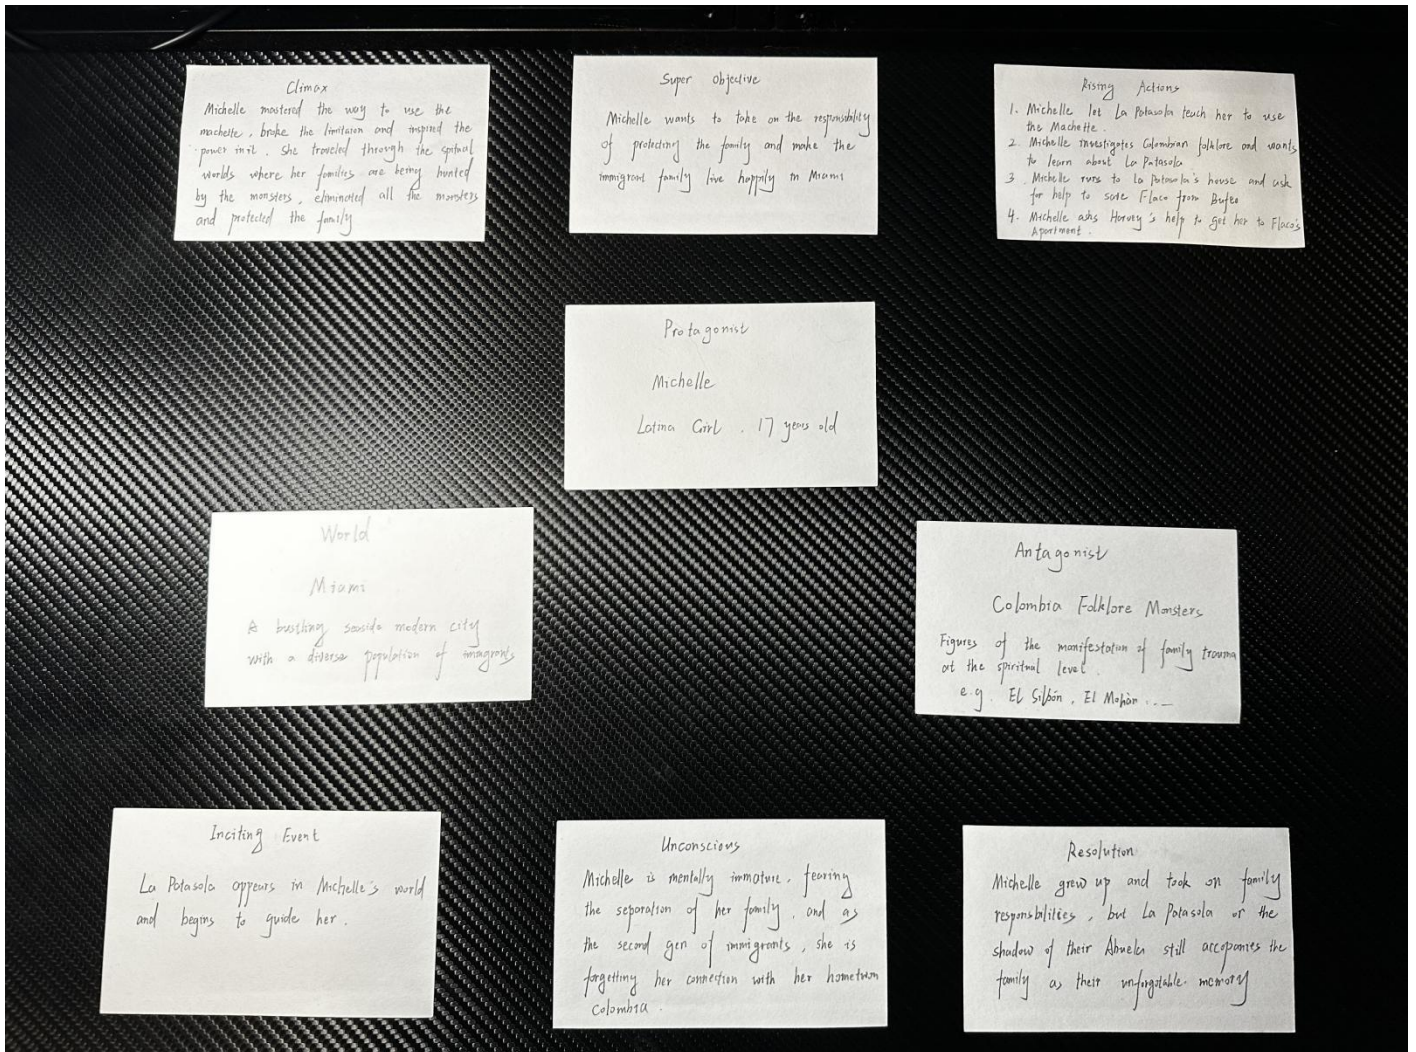 Climax
Michelle mastered the way to use the
machette, broke the limitaion and inspired the
power in it. She traveled through the spitual
worlds where her families are being hunted
by the monsters, eliminated all the monsters
and protected the family
Super Objective
Michelle wants to take on the responsibility
of protecting the family and make the
immigrant family live happily in Miami
Rising Actions
1. Michelle let La Patasola teach her to use
the Machette.
2. Michelle investigates Colombian folklore and wants
to learn about La Patasola
3. Michelle runs to La Patasola's house and ask
for help to save Flaco from Bufeo
4. Michelle asks Harvey's help to get her to Flaco's
Apartment.
Protagonist
Michelle
Latina Girl, 17 years old
World
Miami
A bustling seaside modern city
with a diverse population of immigrants
Antagonist
Colombia Folklore Monsters
Figures of the manifestation of family trauma
at the spiritual level.
e.g. El Silbón, El Mohán ...
Inciting Event
La Patasola appears in Michelle's world
and begins to guide her.
Unconscious
Michelle is mentally immature, fearing
the separation of her family, and as
the second gen of immigrants, she is
forgetting her connection with her hometwon
Colombia.
Resolution
Michelle grew up and took on family
responsbilities, but La Patasola or the
shadow of their Abuela still accopanies the
family as their unforgotable memory